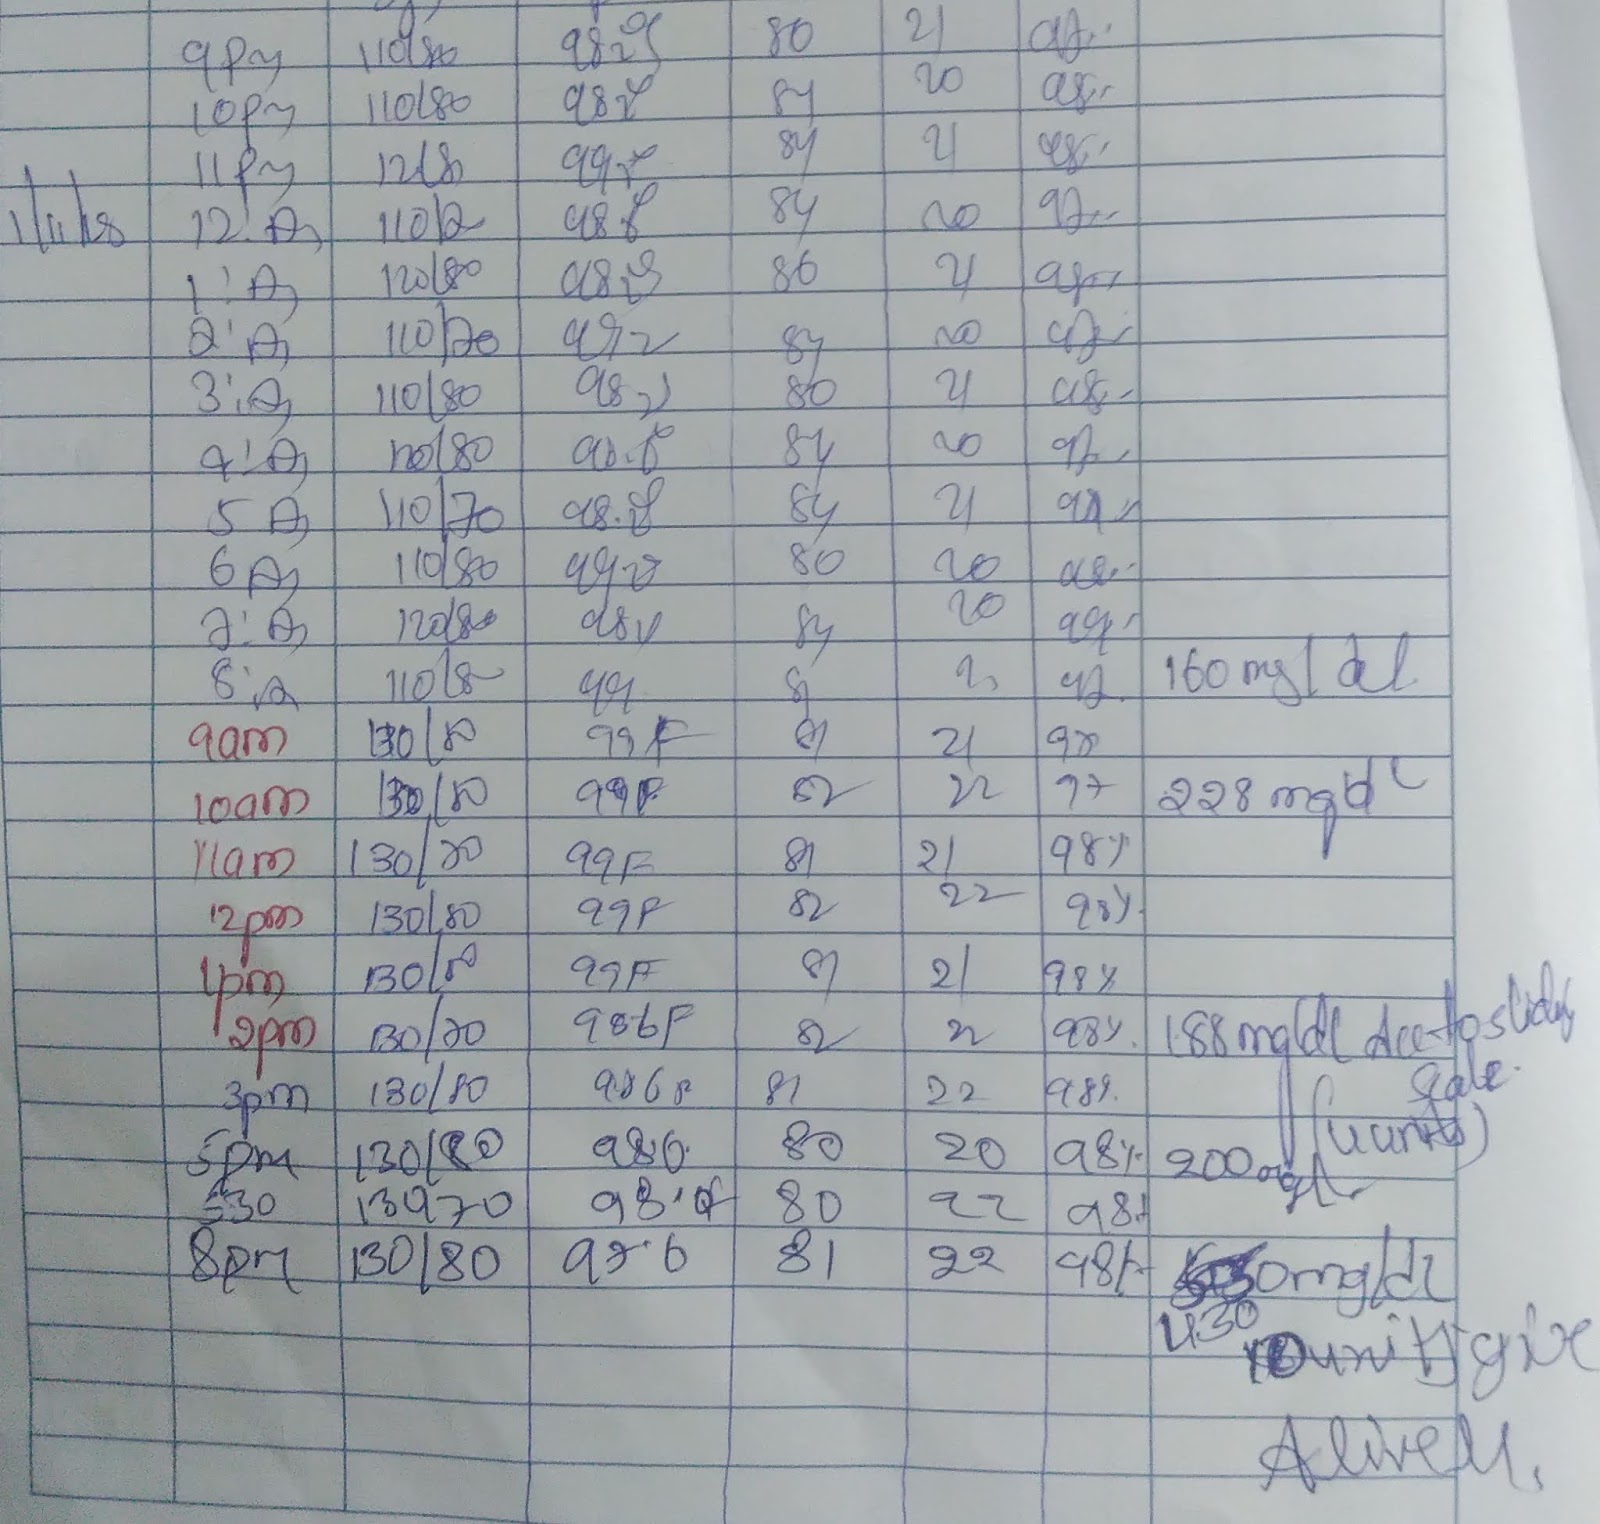 9pm 110/80 98.2f 80 21 97%
10pm 110/80 98.2f 84 20 98%
11pm 84 21 98%
1/11/18 12 A 98.f 84 20 97%
1 A 120/80 86 21 98%
2 A 110/70 99.2 84 20 97%
3 A 110/80 98.2 80 21 98%
4 A 120/80 98.f 84 20 97%
5 A 110/70 98.f 84 21
6 A 110/80 99.2 80 20 98%
7 A 120/80 84 20 99%
8 A 99 97 160 mg/dl
9am 130/80 99F 81 21
10am 130/80 99F 82 22 97 228 mg/dl
11am 130/70 99F 81 21 98%
12pm 130/80 99F 82 22 98%
1pm 130/80 99F 81 21 98%
2pm 130/70 986F 82 22 98% 188 mg/dl
3pm 130/80 986F 81 22 98%
5pm 130/80 986 80 20 98% 200mg/
530 130/70 98.6f 80 22 98%
8pm 130/80 6 81 22 98% mg/dl
430
10 unit give